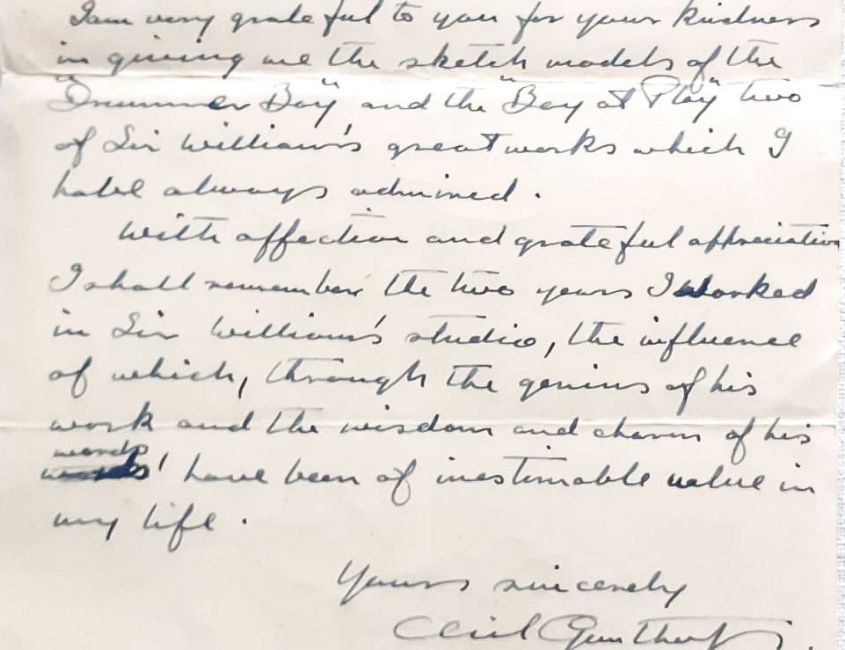 I am very grateful to you for your kindness
in giving me the sketch models of the
"Drummer Boy" and the "Boy at Play" two
of Sir William's great works which I
have always admired.
With affection and grateful appreciation
I shall remember the two years I worked
in Sir William's studio, the influence
of which, through the genius of his
work and the wisdom and charm of his
words
have been of inestimable value in
my life.
Yours sincerely
Cecil